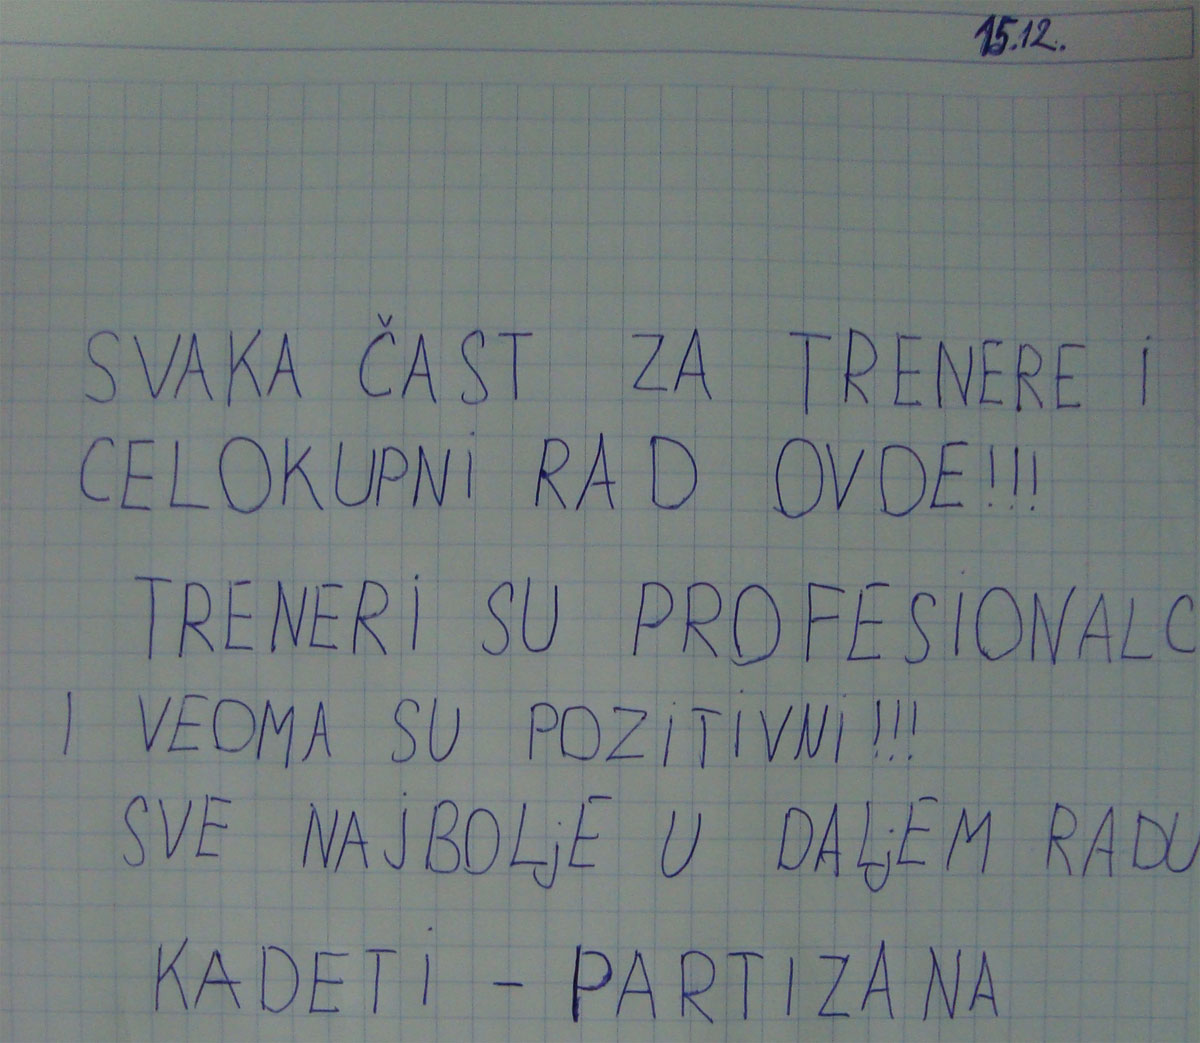 15.12.
SVAKA ČAST ZA TRENERE I
CELOKUPNI RAD OVDE!!!
TRENERI SU PROFESIONALC
I VEOMA SU POZITIVNI!!!
SVE NAJBOLjE U DALjEM RADU
KADETI - PARTIZANA